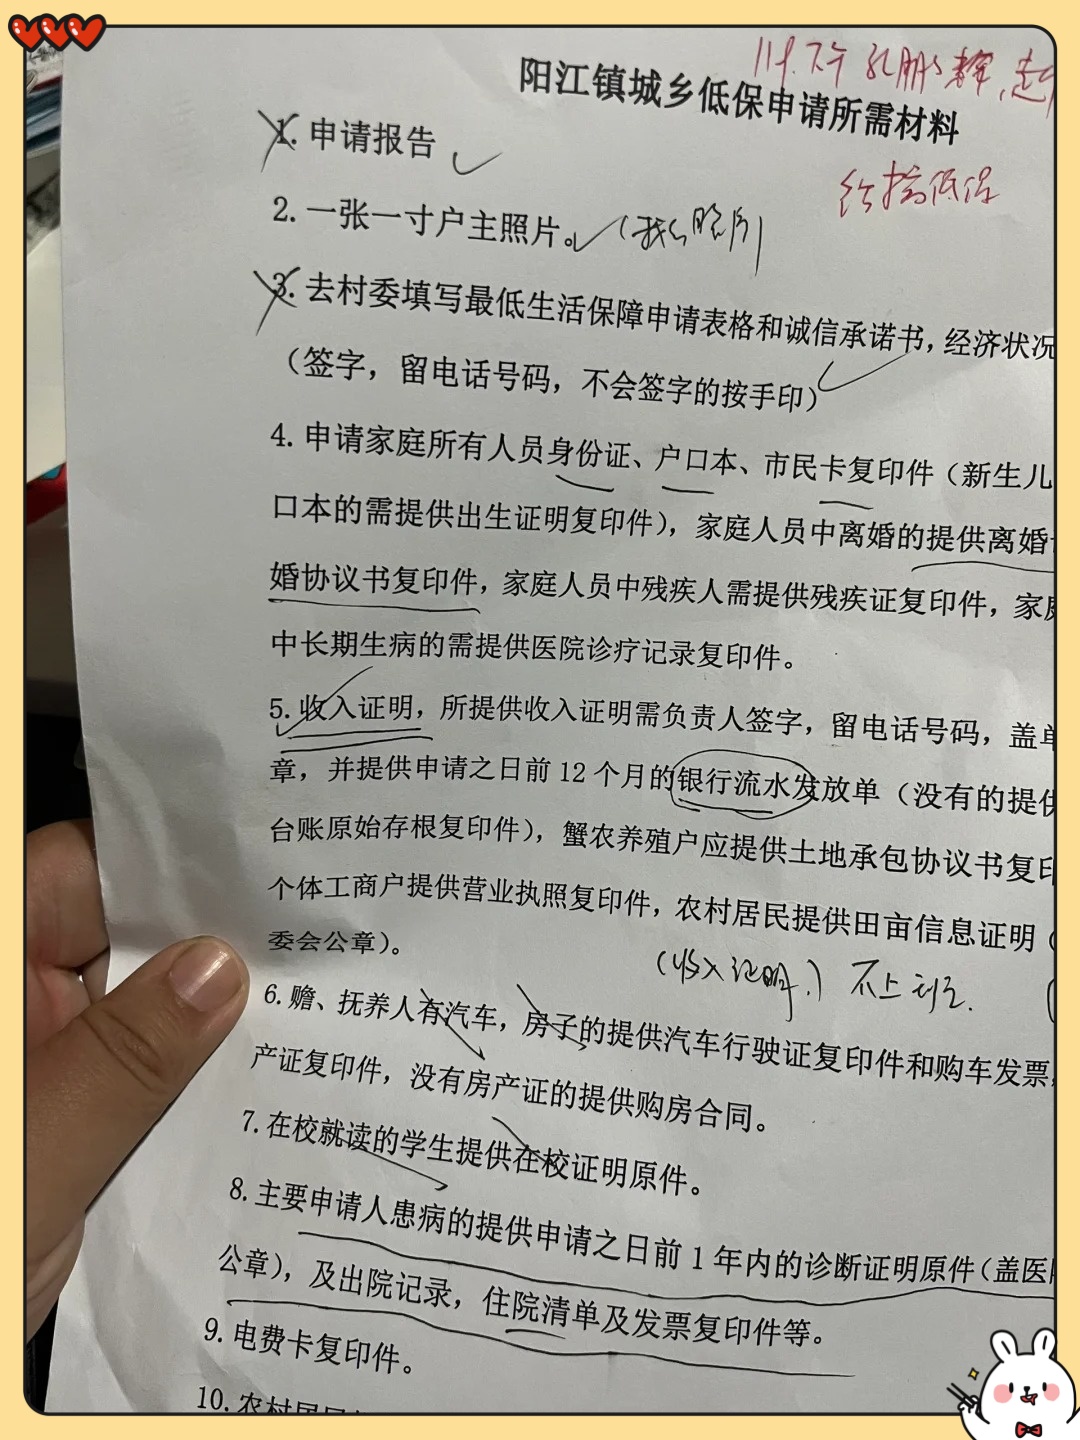 阳江镇城乡低保申请所需材料
给搞低保
1. 申请报告
2. 一张一寸户主照片。(我么照片)
3. 去村委填写最低生活保障申请表格和诚信承诺书，经济状况
（签字，留电话号码，不会签字的按手印）
4. 申请家庭所有人员身份证、户口本、市民卡复印件（新生儿
口本的需提供出生证明复印件），家庭人员中离婚的提供离婚
婚协议书复印件，家庭人员中残疾人需提供残疾证复印件，家庭
中长期生病的需提供医院诊疗记录复印件。
5. 收入证明，所提供收入证明需负责人签字，留电话号码，盖单
章，并提供申请之日前 12 个月的银行流水发放单（没有的提供
台账原始存根复印件），蟹农养殖户应提供土地承包协议书复印
个体工商户提供营业执照复印件，农村居民提供田亩信息证明（
委会公章）。
（收入证明.）不上
6. 赡、抚养人有汽车，房子的提供汽车行驶证复印件和购车发票，
产证复印件，没有房产证的提供购房合同。
7. 在校就读的学生提供在校证明原件。
8. 主要申请人患病的提供申请之日前 1 年内的诊断证明原件（盖医
公章），及出院记录，住院清单及发票复印件等。
9. 电费卡复印件。
10. 农村居民